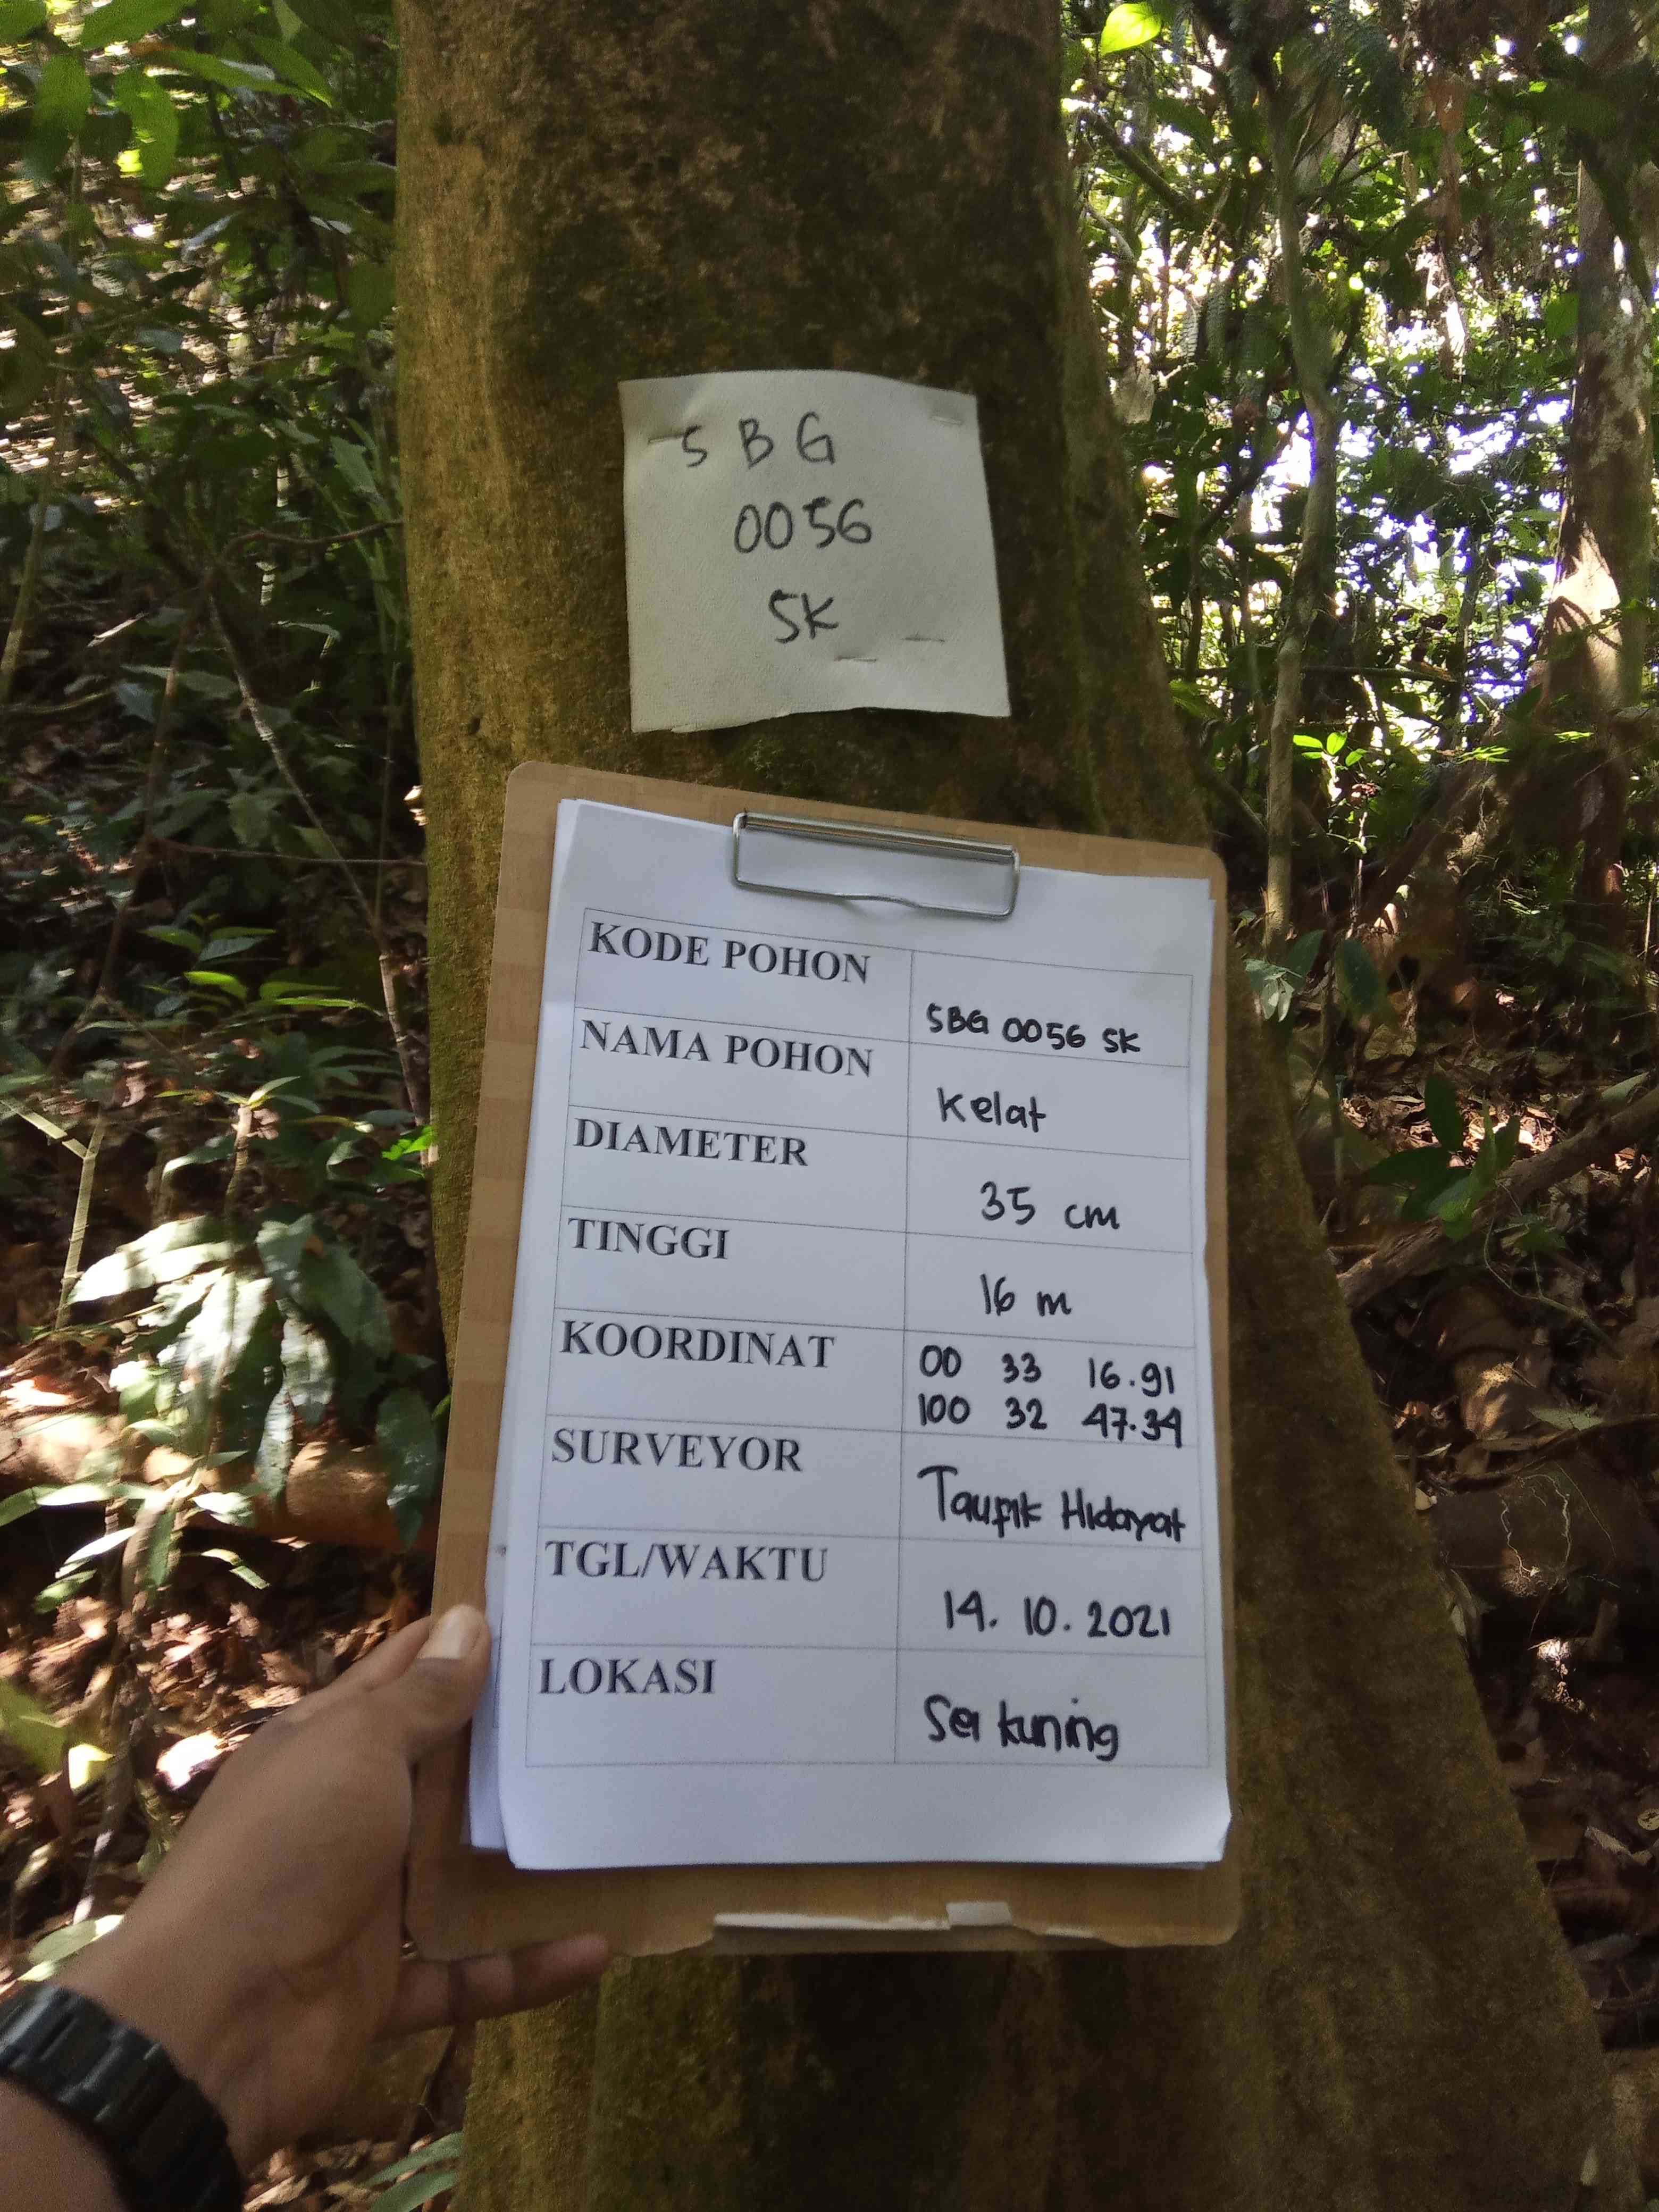 SBG
0056
SK
KODE POHON
SBG 0056 SK
NAMA POHON
Kelat
DIAMETER
35 cm
TINGGI
16 m
KOORDINAT
00 33 16.91
100 32 47.34
SURVEYOR
Taupik Hidayat
TGL/WAKTU
14. 10. 2021
LOKASI
Sei kuning